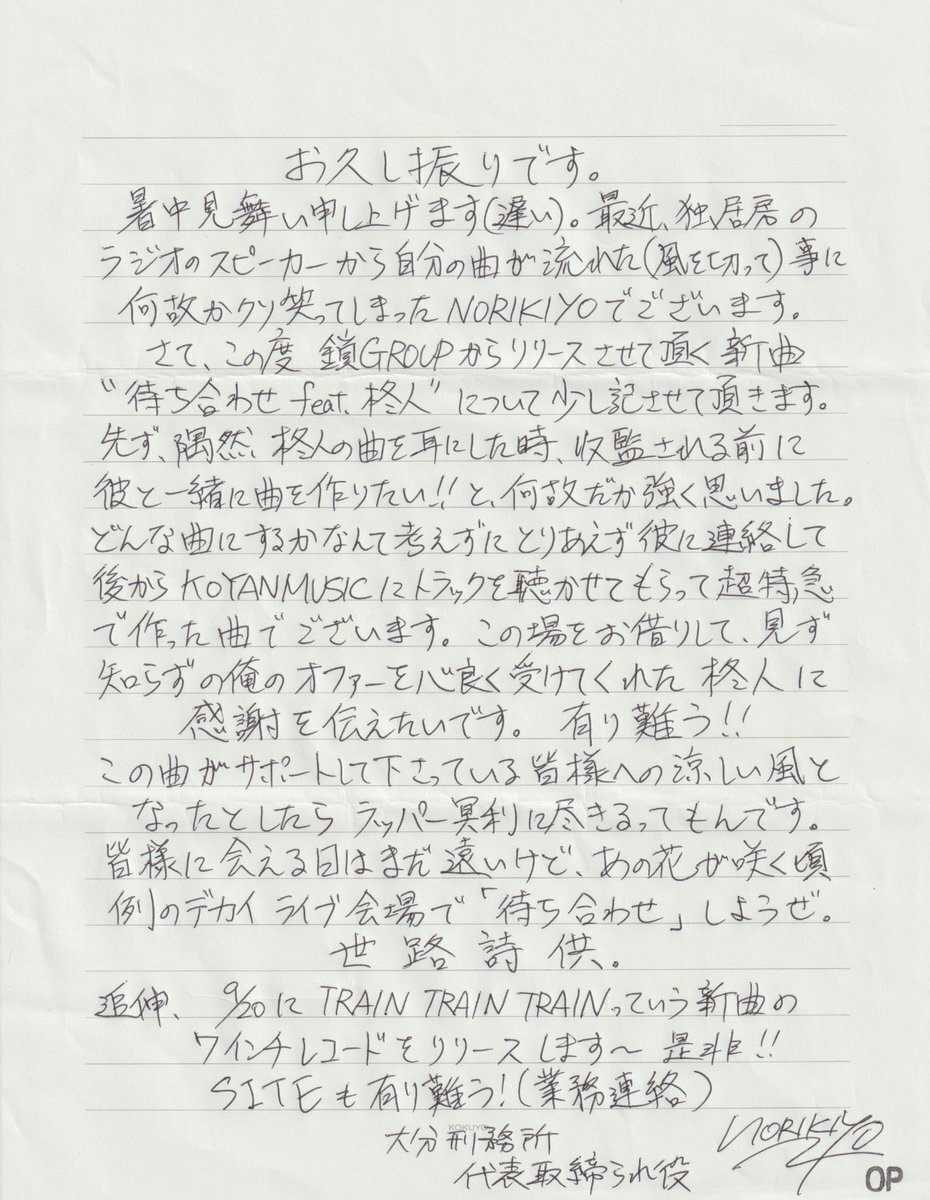 お久し振りです。
暑中見舞い申し上げます(遅い)。最近、独居房の
ラジオのスピーカーから自分の曲が流れた(風を切って)事に
何故かクソ笑ってしまったNORIKIYOでございます。
さて、この度 鎖GROUPからリリースさせて頂く新曲
“待ち合わせ feat. 柊人”について少し記させて頂きます。
先ず、隅然、柊人の曲を耳にした時、収監される前に
彼と一緒に曲を作りたい!!と、何故だか強く思いました。
どんな曲にするかなんて考えずにとりあえず彼に連絡して
後からKOYANMUSICにトラックを聴かせてもらって超特急
で作った曲でございます。この場をお借りして、見ず
知らずの俺のオファーを心良く受けてくれた 柊人に
感謝を伝えたいです。 有り難う!!
この曲がサポートして下さっている皆様への涼しい風と
なったとしたら ラッパー冥利に尽きるってもんです。
皆様に会える日はまだ遠いけど、あの花が咲く頃
例のデカイ ライブ会場で「待ち合わせ」しようぜ。
世路詩供。
追伸、 9/20に TRAIN TRAIN TRAINっていう新曲の
7インチレコードをリリースします〜 是非!!
SITEも有り難う!(業務連絡)
KOKUYO
大分刑務所
代表取締られ役
NORIKIYO
OP